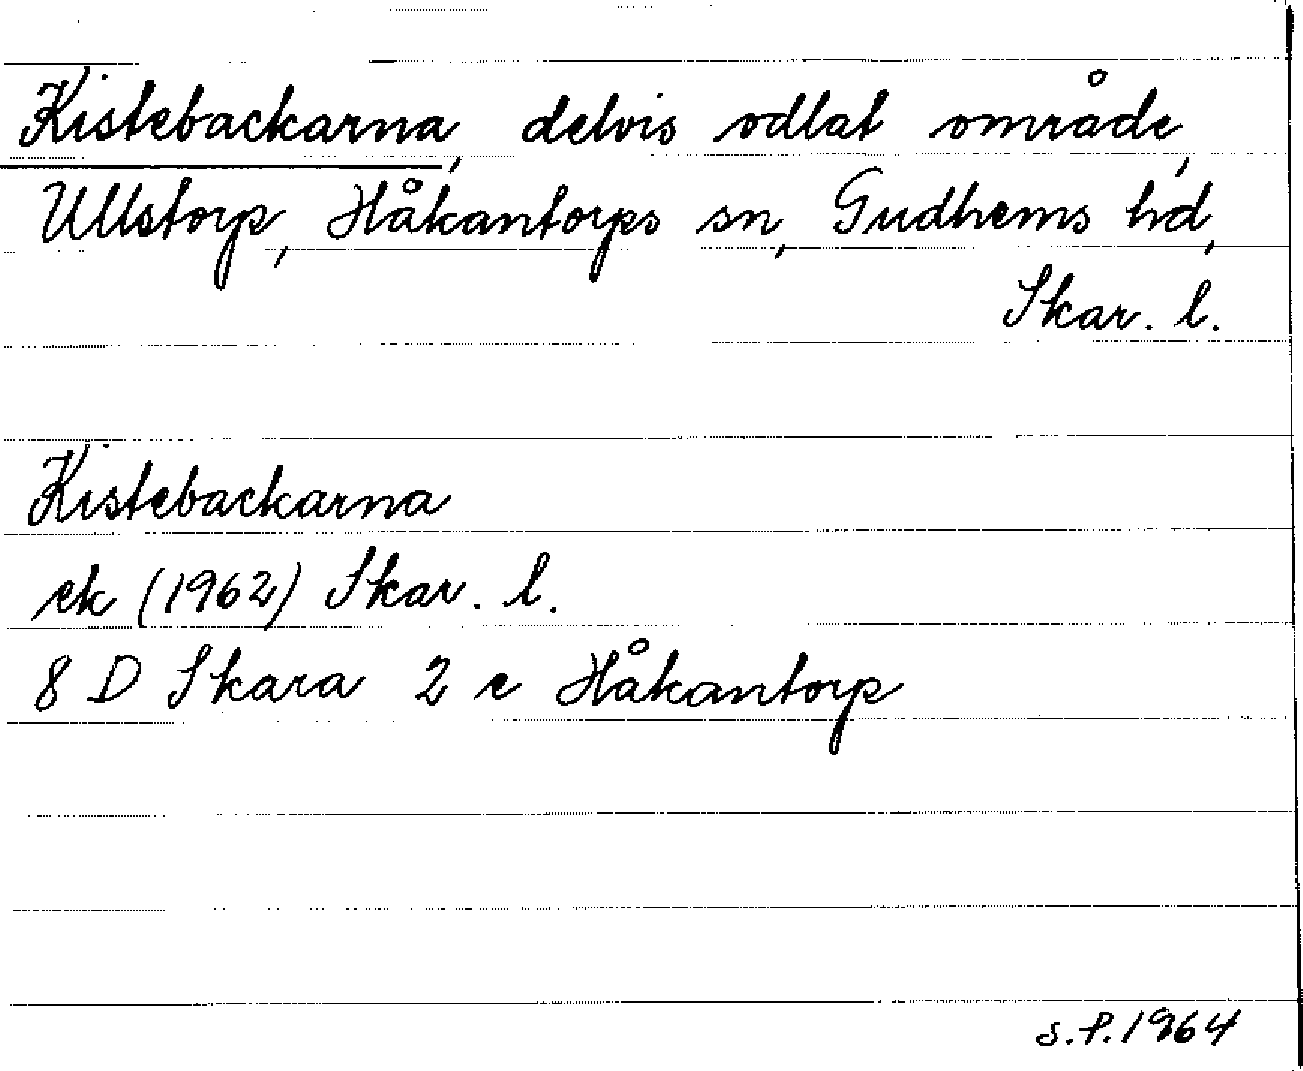 Kistebackarna, delvis odlat område,
Ullstorp, Håkantorps sn, Gudhems hd,
Skar. l.
Kistebackarna
ek (1962) Skar. l.
8 D Skara 2 e Håkantorp
S.P. 1964